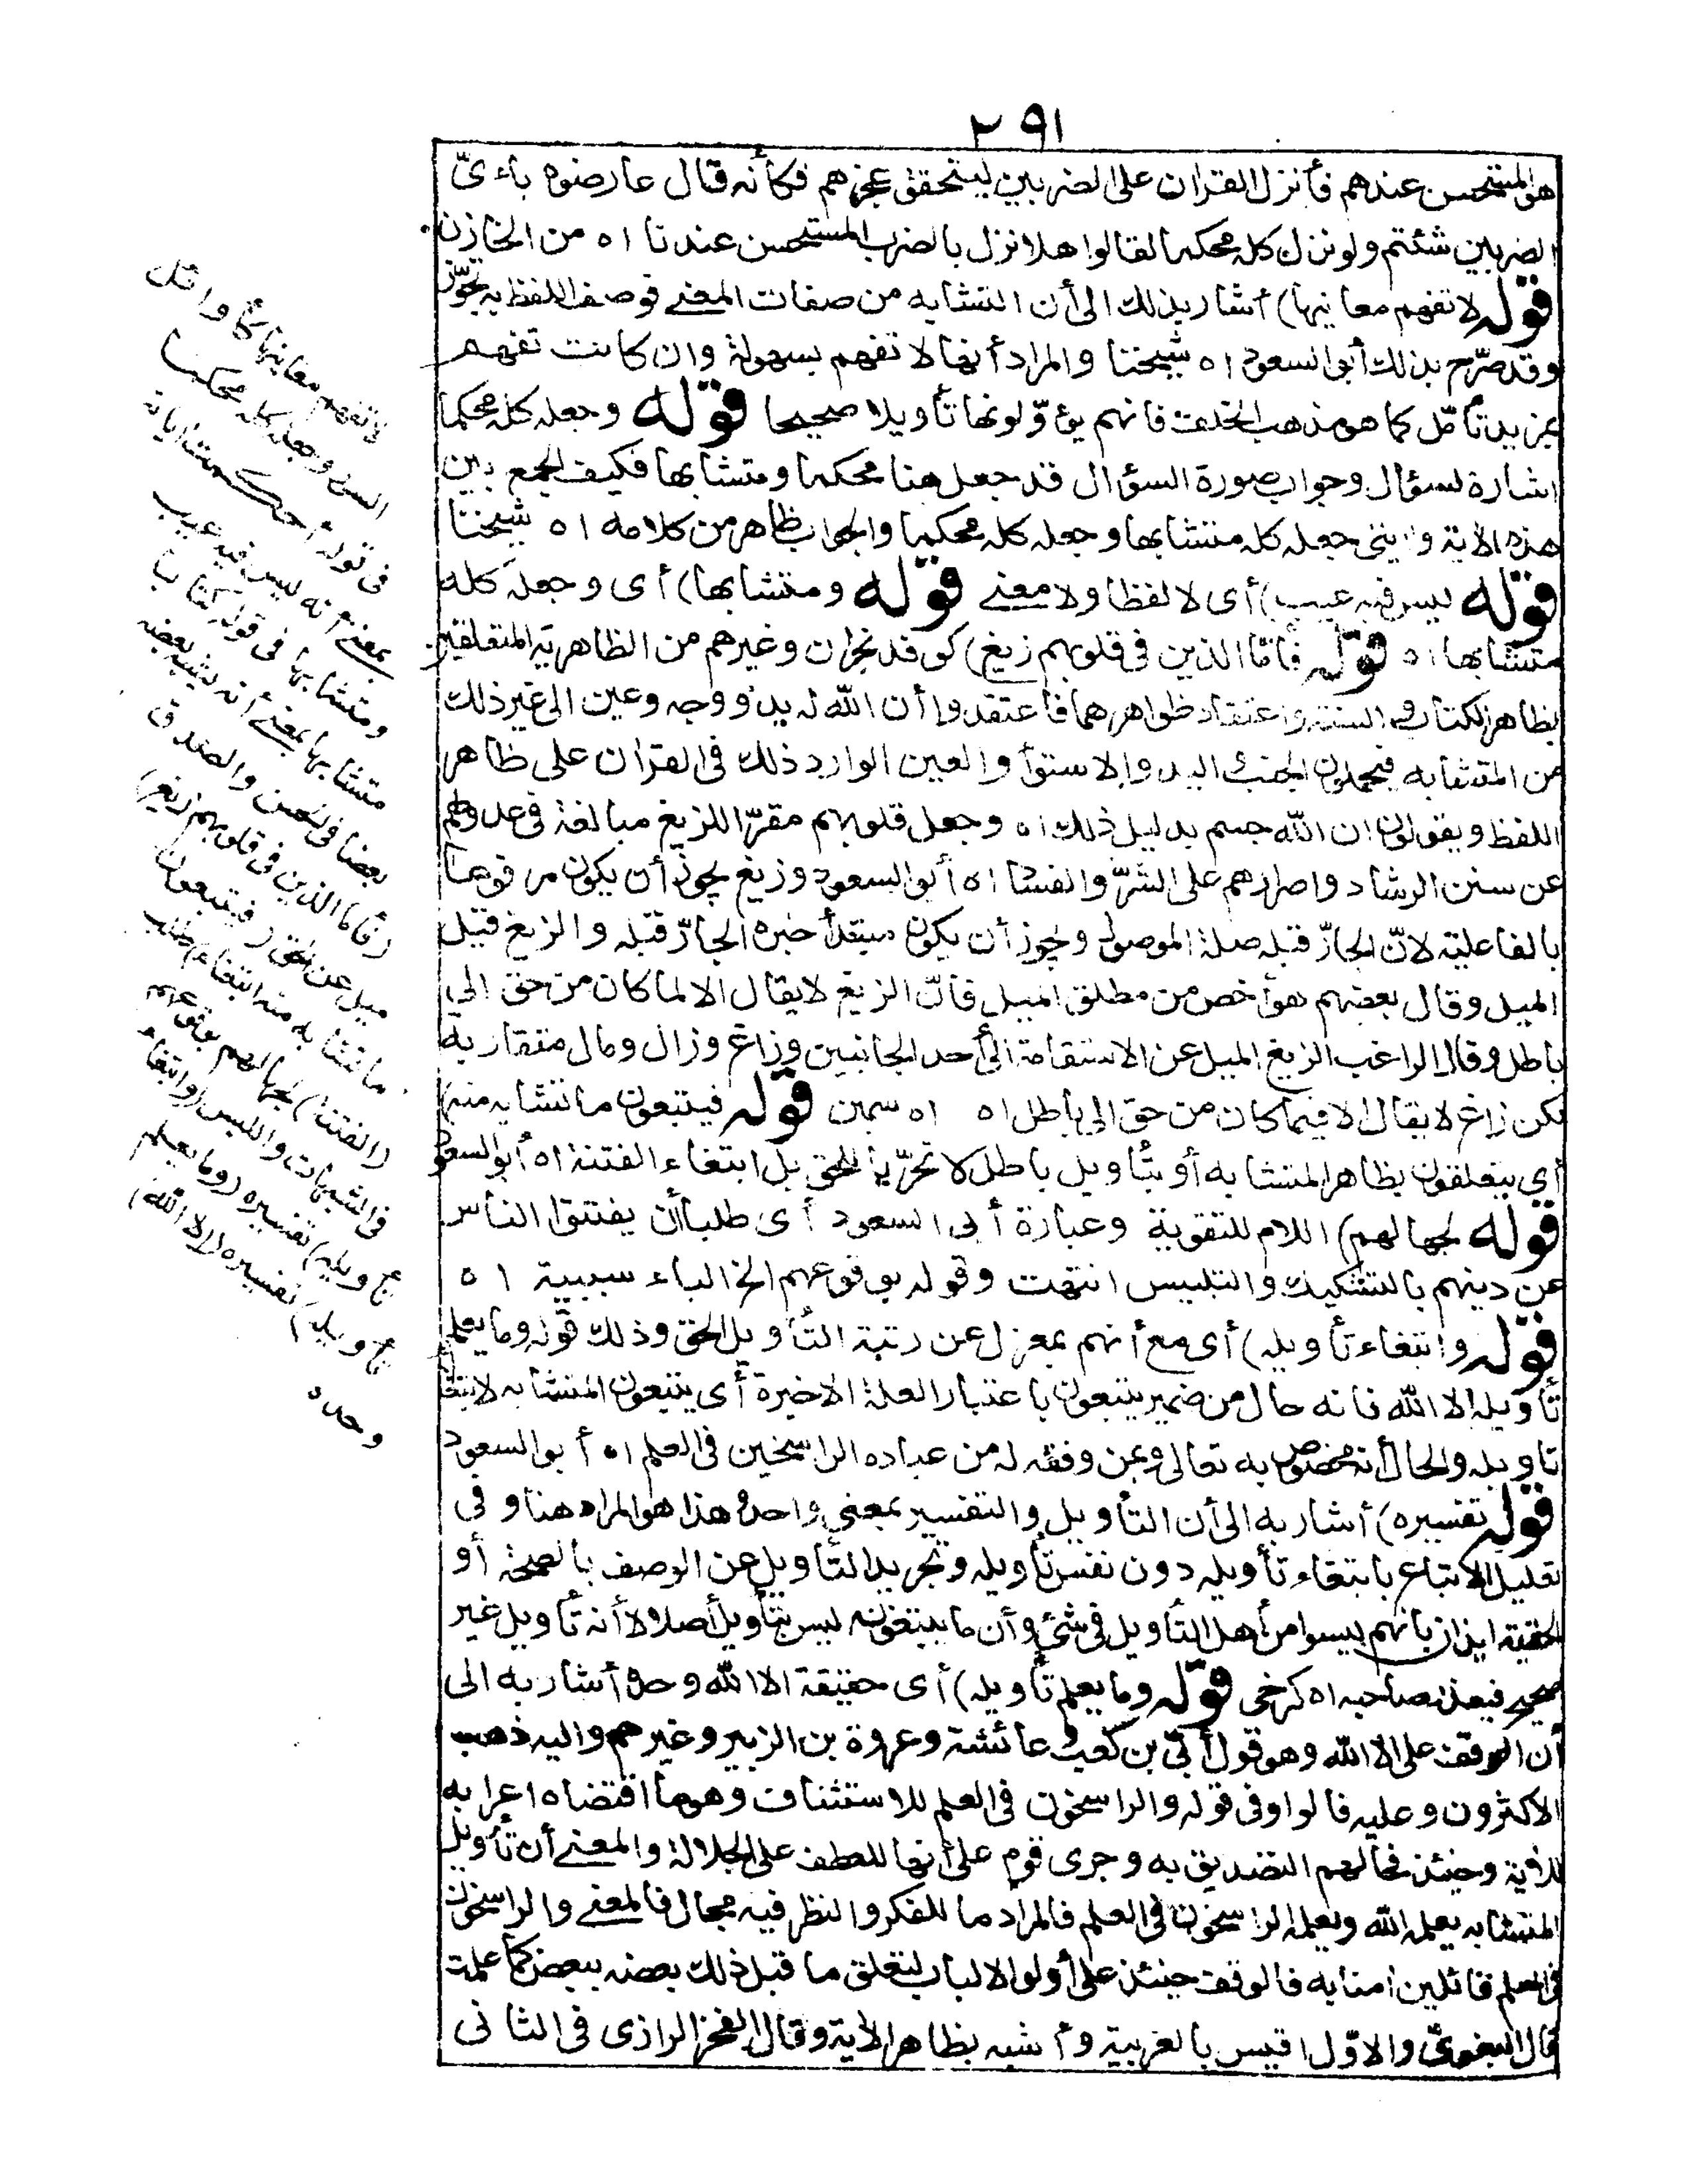 ٢٩١
هو المستحسن عندهم فأنزل القران على الضربين ليتحقق عجزهم فكأنه قال عارضوه بأىّ
الضربين شئتم ولو نزل كله محكما لقالوا هلا نزل بالضرب المستحسن عندنا اه من الخازن
قوله لا تفهم معانيها) أشار بذلك الى أن التشابه من صفات المعنى فوصف اللفظ به تجوّز
وقد صرّح بذلك أبو السعود اه شيخنا والمراد أنها لا تفهم بسهولة وان كانت تفهم
بمزيد تأمّل كما هو مذهب الخلف فانهم يؤوّلونها تأويلا صحيحا قوله وجعله كله محكما
اشارة لسؤال وجواب صورة السؤال قد جعل هنا محكما ومتشابها فكيف الجمع بين
هذه الاية وايتى جعله كله متشابها وجعله كله محكما والجواب ظاهر من كلامه اه شيخنا
قوله ليس فيه عيب) أى لا لفظا ولا معنى قوله ومتشابها) أى وجعله كله
متشابها اه قوله فأمّا الذين فى قلوبهم زيغ) كوفد نجران وغيرهم من الظاهرية المتعلقين
بظاهر الكتاب والسنة واعتقاد ظواهرهما فاعتقدوا أن الله له يد ووجه وعين الى غير ذلك
من المتشابه فيحملون الجنب واليد والاستوأ والعين الوارد ذلك فى القران على ظاهر
اللفظ ويقولون ان الله جسم بدليل ذلك اه وجعل قلوبهم مقرّا للزيغ مبالغة فى عدولهم
عن سنن الرشاد واصرارهم على الشرّ والفساد اه أبو السعود وزيغ يجوز أن يكون مرفوعا
بالفاعلية لانّ الجارّ قبله صلة الموصول ويجوز أن يكون مبتدأ خبره الجارّ قبله والزيغ قيل
الميل وقال بعضهم هو أخص من مطلق الميل فانّ الزيغ لا يقال الا لما كان من حق الى
باطل وقال الراغب الزيغ الميل عن الاستقامة الى أحد الجانبين وزاغ وزال ومال متقاربة
لكن زاغ لا يقال الا فيما كان من حق الى باطل اه اه سمين قوله فيتبعون ما تشابه منه)
أى يتعلقون بظاهر المتشابه أو بتأويل باطل لا تحرّيا للحق بل ابتغاء الفتنة اه أبو السعود
قوله لجهالهم) اللام للتقوية وعبارة أبى السعود أى طلبا أن يفتنوا الناس
عن دينهم بالتشكيك والتلبيس انتهت وقوله بوقوعهم الخ الباء سببية اه
قوله وابتغاء تأويله) أى مع أنهم بمعزل عن رتبة التأويل الحق وذلك قوله وما يعلم
تأويله الا الله فانه حال من ضمير يتبعون باعتبار العلة الاخيرة أى يتبعون المتشابه لابتغاء
تاويله والحال أنه مخصوص به تعالى وبمن وفقه له من عباده الراسخين فى العلم اه أبو السعود
قوله تفسيره) أشار به الى أن التأويل والتفسير بمعنى واحد وهذا هو المراد هنا وفى
تعليل الاتباع بابتغاء تأويله دون نفس تأويله وتجريد التأويل عن الوصف بالصحة أو
الحقية ايذان بانهم ليسوا من أهل التأويل فى شئ وأن ما يبتغونه ليس بتأويل أصلا لا أنه تأويل غير
صحيح فيعذر صاحبه اه كرخى قوله وما يعلم تأويله) أى حقيقة الا الله وحده أشار به الى
أن الوقف على الا الله وهو قول أبىّ بن كعب وعائشة وعروة بن الزبير وغيرهم واليه ذهب
الاكثرون وعليه فالواو فى قوله والراسخون فى العلم للاستئناف وهو ما اقتضاه اعرابه
للاية وحينئذ فمالهم التصديق به وجرى قوم على أنها للعطف على الجلالة والمعنى أن تأويل
المتشابه يعلمه الله ويعلمه الراسخون فى العلم فالمراد ما للفكر والنظر فيه مجال فالمعنى والراسخون
فى العلم قائلين امنا به فالوقف حينئذ على أولوا الالباب لتعلق ما قبل ذلك بعضه ببعض كما علمت
قال البغوىّ والاوّل اقيس بالعربية وأشبه بظاهر الاية وقال الفخر الرازى فى الثانى
لا تفهم معانيها كأوائل
السور وجعله كله محكما
فى قوله أحكمت اياته
بمعنى أنه ليس فيه عيب
ومتشابها فى قوله كتابا
متشابها بمعنى أنه يشبه بعضه
بعضا فى الحسن والصدق
(فأما الذين فى قلوبهم زيغ)
ميل عن الحق (فيتبعون
ما تشابه منه ابتغاء) طلب
(الفتنة) لجهالهم بوقوعهم
فى الشبهات واللبس (وابتغاء
تأويله) تفسيره (وما يعلم
تأويله) تفسيره (الا الله)
وحده